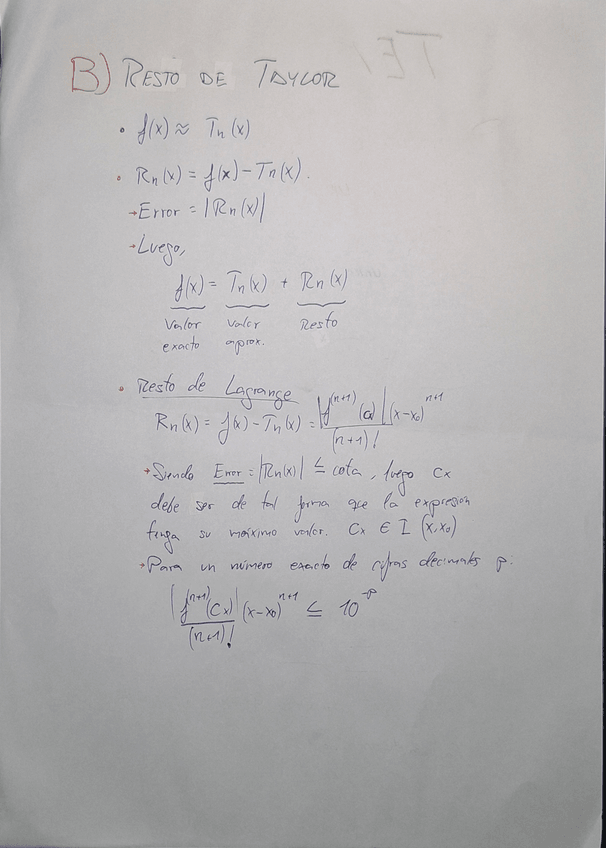 B) RESTO DE TAYLOR
• f(x) ≈ Tn(x)
• Rn(x) = f(x) - Tn(x).
→ Error = |Rn(x)|
→ Luego,
f(x) = Tn(x) + Rn(x)
Valor valor Resto
exacto aprox.
• Resto de Lagrange
Rn(x) = f(x) - Tn(x) = |f^(n+1)(a)|(x-x₀)^n+1 / (n+1)!
→ Siendo Error = |Rn(x)| ≤ cota, luego Cx
debe ser de tal forma que la expresion
tenga su máximo valor. Cx ∈ I (x,x₀)
→ Para un número exacto de cifras decimales p.
|f^(n+1)(Cx)|(x-x₀)^n+1 / (n+1)! ≤ 10^-p